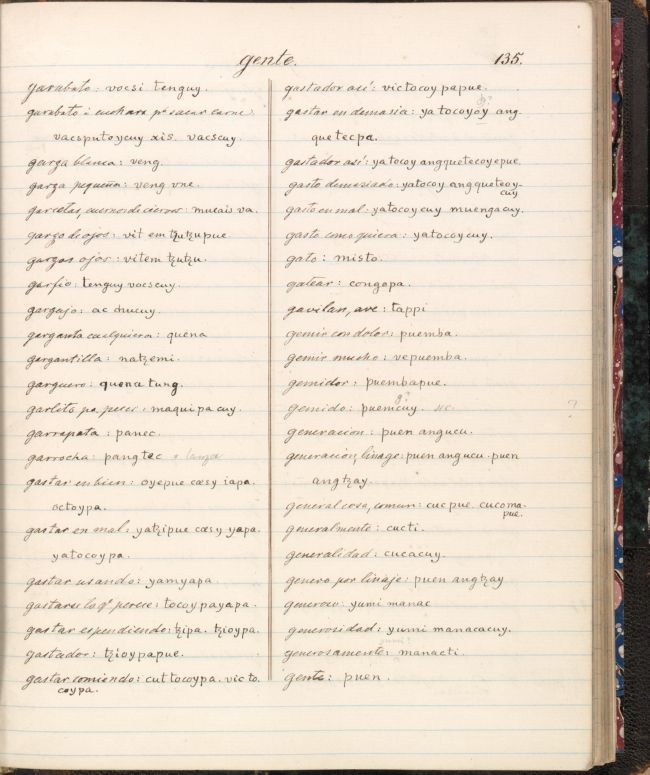 gente.
135.
garabato: vocsi tenguy.
garabato i cuchara pa sacar carne
vacsputoycuy xis. vacscuy.
garza blanca: veng.
garza pequeña: veng vne.
garcetas, cuernos de ciervos: mucais va.
garzo de ojos: vit em tzutzupue
garzos ojos: vitem tzutzu.
garfio: tenguy vocscuy.
gargajo: ac chucuy.
garganta cualquiera: quena
gargantilla: natzemi.
garguero: quena tung.
garlito pa peces: maqui pa cuy.
garrapata: panec.
garrocha: pangtec o lanza
gastar en bien: oyepue cæsy iapa.
octoypa.
gastar en mal: yatzipue cæsy yapa.
yatocoypa.
gastar usando: yamyapa
gastarse lo qe perece: tocoypayapa.
gastar espendiendo: tzipa. tzioypa.
gastador: tzioypapue.
gastar comiendo: cuttocoypa. victo.
coypa.
gastador así: victocoypapue.
gastar en demasia: yatocoyoy ang-
quetecpa.
gastador así: yatocoy angquetecoyepue.
gasto demasiado: yatocoy angqueteoy-
cuy
gasto en mal: yatocoycuy muengacuy.
gasto como quiera: yatocoycuy.
gato: misto.
gatear: congopa.
gavilan, ave: tappi
gemir con dolor: puemba.
gemir mucho: vepuemba.
gemidor: puembapue.
gemido: puemcuy. sic. ?
generacion: puen angucu.
generacion, linage: puen angucu. puen
angtzay.
general cosa, comun: cucpue. cucoma-
pue.
generalmente: cucti.
generalidad: cucacuy.
genero por linaje: puen angtzay
generoso: yumi manac
generosidad: yumi manacacuy.
generosamente: manacti.
gente: puen.